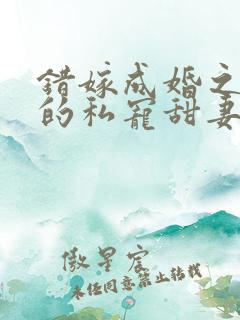 错嫁成婚之
的私宠甜妻
傲星宸
未经同意禁止转载